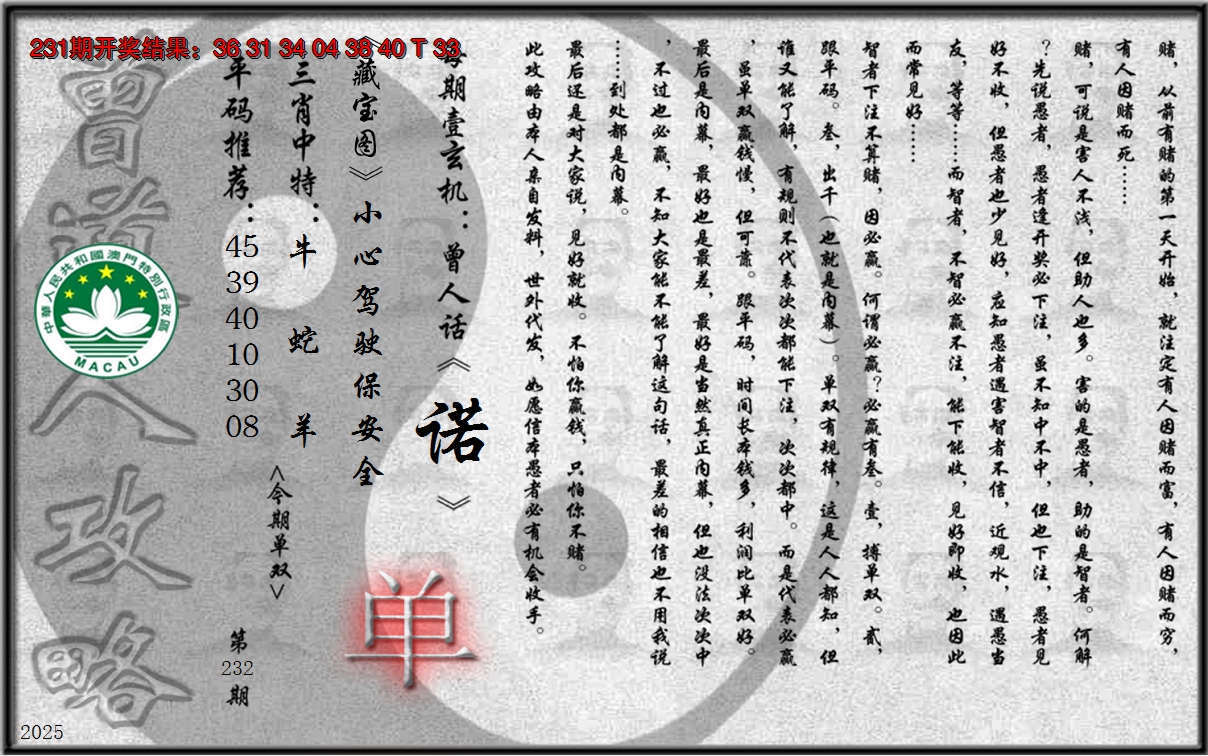 231期开奖结果：36 31 34 04 38 40 T 33
赌，从前有赌的第一天开始，就注定有人因赌而富，有人因赌而穷，
有人因赌而死……
赌，可说是害人不浅，但助人也多。害的是愚者，助的是智者。何解
？先说愚者，愚者逢开奖必下注，虽不知中不中，但也下注，愚者见
好不收，但愚者也少见好，应知愚者遇害智者不信，近观水，遇愚当
友，等等……而智者，不智必赢不注，能下能收，见好即收，也因此
而常见好……
智者下注不算赌，因必赢。何谓必赢？必赢有叁。壹，搏单双。贰，
跟平码。叁，出千（也就是内幕）。单双有规律，这是人人都知，但
谁又能了解，有规则不代表次次都能下注，次次都中。而是代表必赢
，虽单双赢钱慢，但可靠。跟平码，时间长本钱多，利润比单双好。
最后是内幕，最好也是最差，最好是当然真正内幕，但也没法次次中
，不过也必赢，不知大家能不能了解这句话，最差的相信也不用我说
……到处都是内幕。
最后还是对大家说，见好就收。不怕你赢钱，只怕你不赌。
此攻略由本人亲自发料，世外代发，如愿信本愚者必有机会收手。
每期壹玄机：曾人话《诺》
《藏宝图》小心驾驶保安全
单
三肖中特：牛 蛇 羊
<今期单双>
平码推荐：45 39 40 10 30 08
第232期
曾道人攻略
中華人民共和國澳門特別行政區
MACAU
2025